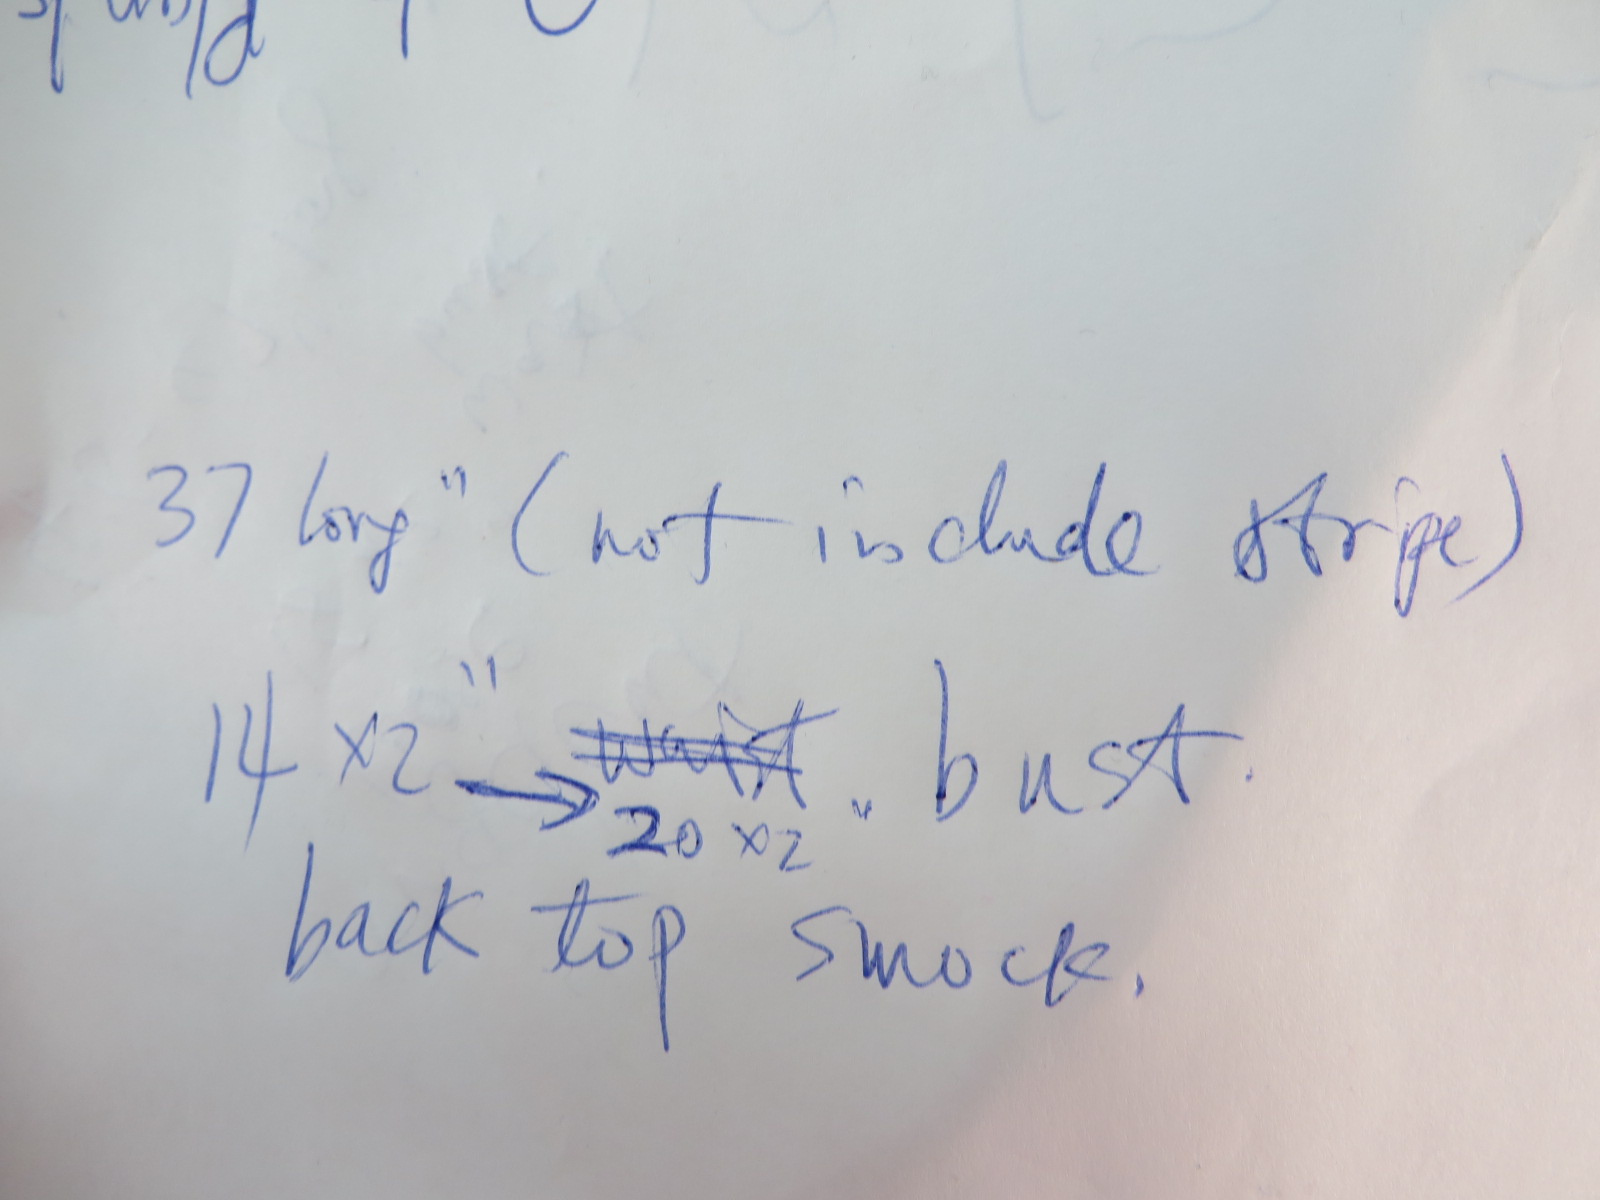 37 long" (not include stripe)
14 x2" → waist bust.
20 x2"
back top smock.